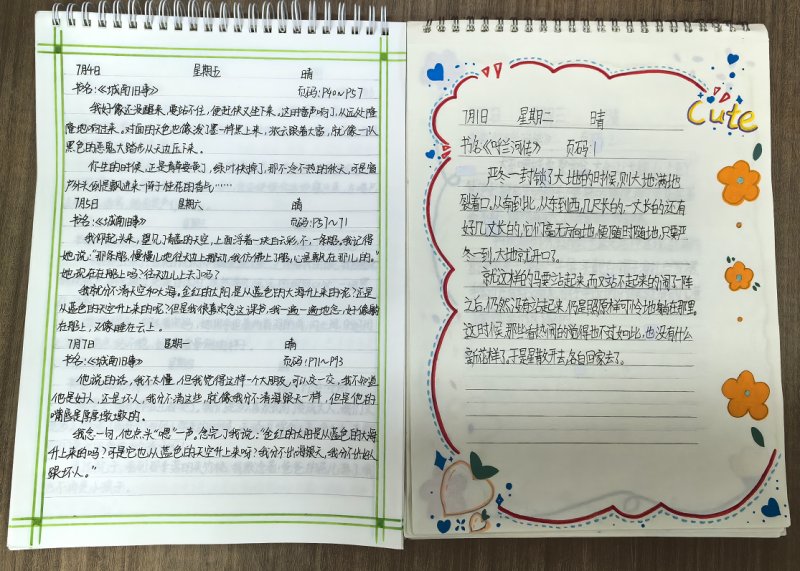 7月4日 星期五 晴
书名:《城南旧事》 页码:P40~P57
我好像还没睡来,要站不住,便赶快又坐下来。这时雷声响了,从远处隆
隆地响过来。对面的天色也像泼了墨一样黑上来,浓云跟着大雷,就像一队
黑色的恶鬼大踏步从天边压下来。
你生的时候,正是青草要黄了,绿叶快掉了,那不冷不热的秋天,可是窗
户外头倒是飘进来一阵子桂花的香气……
7月5日 星期六 晴
书名:《城南旧事》 页码:P57~71
我仰起头来,望见了青蓝的天空,上面浮着一块白云彩,不,一条船。我记得
她说:"那条船,慢慢儿地往天边上挪动,我仿佛上了船,心是飘在那儿的。"
她现在在船上吗?往天边儿上去了吗?
我就分不清天空和大海。金红的太阳是从蓝色的大海升上来的呢?还是
从蓝色的天空升上来的呢?但是我很喜欢念这课书,我一遍一遍地念,好像躺
在船上,又像睡在云上。
7月7日 星期一 晴
书名:《城南旧事》 页码:P71~P93
他说的话,我不太懂,但我觉得这样一个大朋友,可以交一交,我不知道
他是好人,还是坏人,我分不清这些,就像我分不清海跟天一样,但是他的
嘴唇是厚厚墩墩的。
我念一句,他点头"嗯"一声。念完了我说:"金红的太阳是从蓝色的大海
升上来的吗?可是它也从蓝色的天空升上来呀?我分不出海跟天,我分不出好人
跟坏人。"
Cute
7月1日 星期二 晴
书名《呼兰河传》 页码1
严冬一封锁了大地的时候,则大地满地
裂着口。从南到北,从东到西,几尺长的,一丈长的,还有
好几丈长的,它们毫无方向地,便随时随地,只要严
冬一到,大地就开口了。
就这样的马要站起来,而又站不起来的闹了一阵
之后,仍然没有站起来,仍是照原样可怜地躺在那里。
这时候,那些看热闹的觉得也不过如此,也没有什么
新花样了。于是星散开去,各自回家去了。